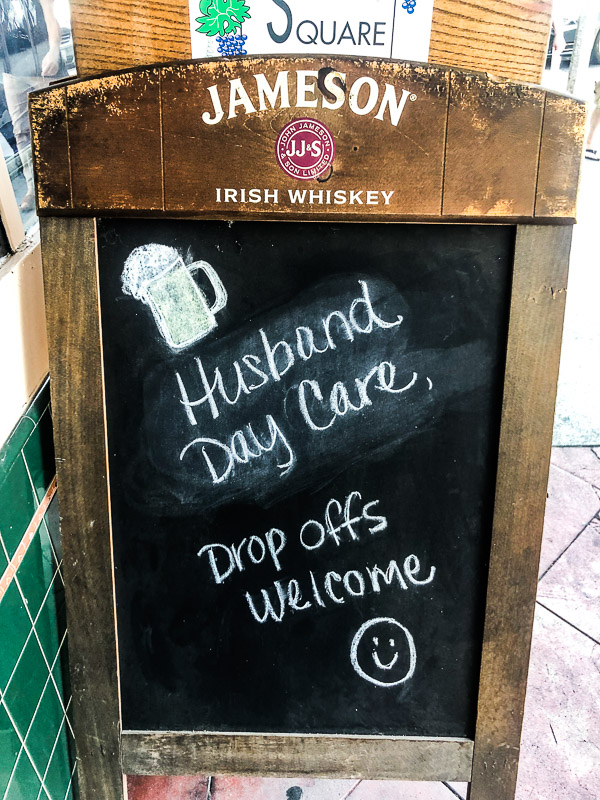 SQUARE
JAMESON®
JOHN JAMESON
JJ&S
& SON LIMITED
IRISH WHISKEY
Husband
Day Care,
Drop offs
Welcome